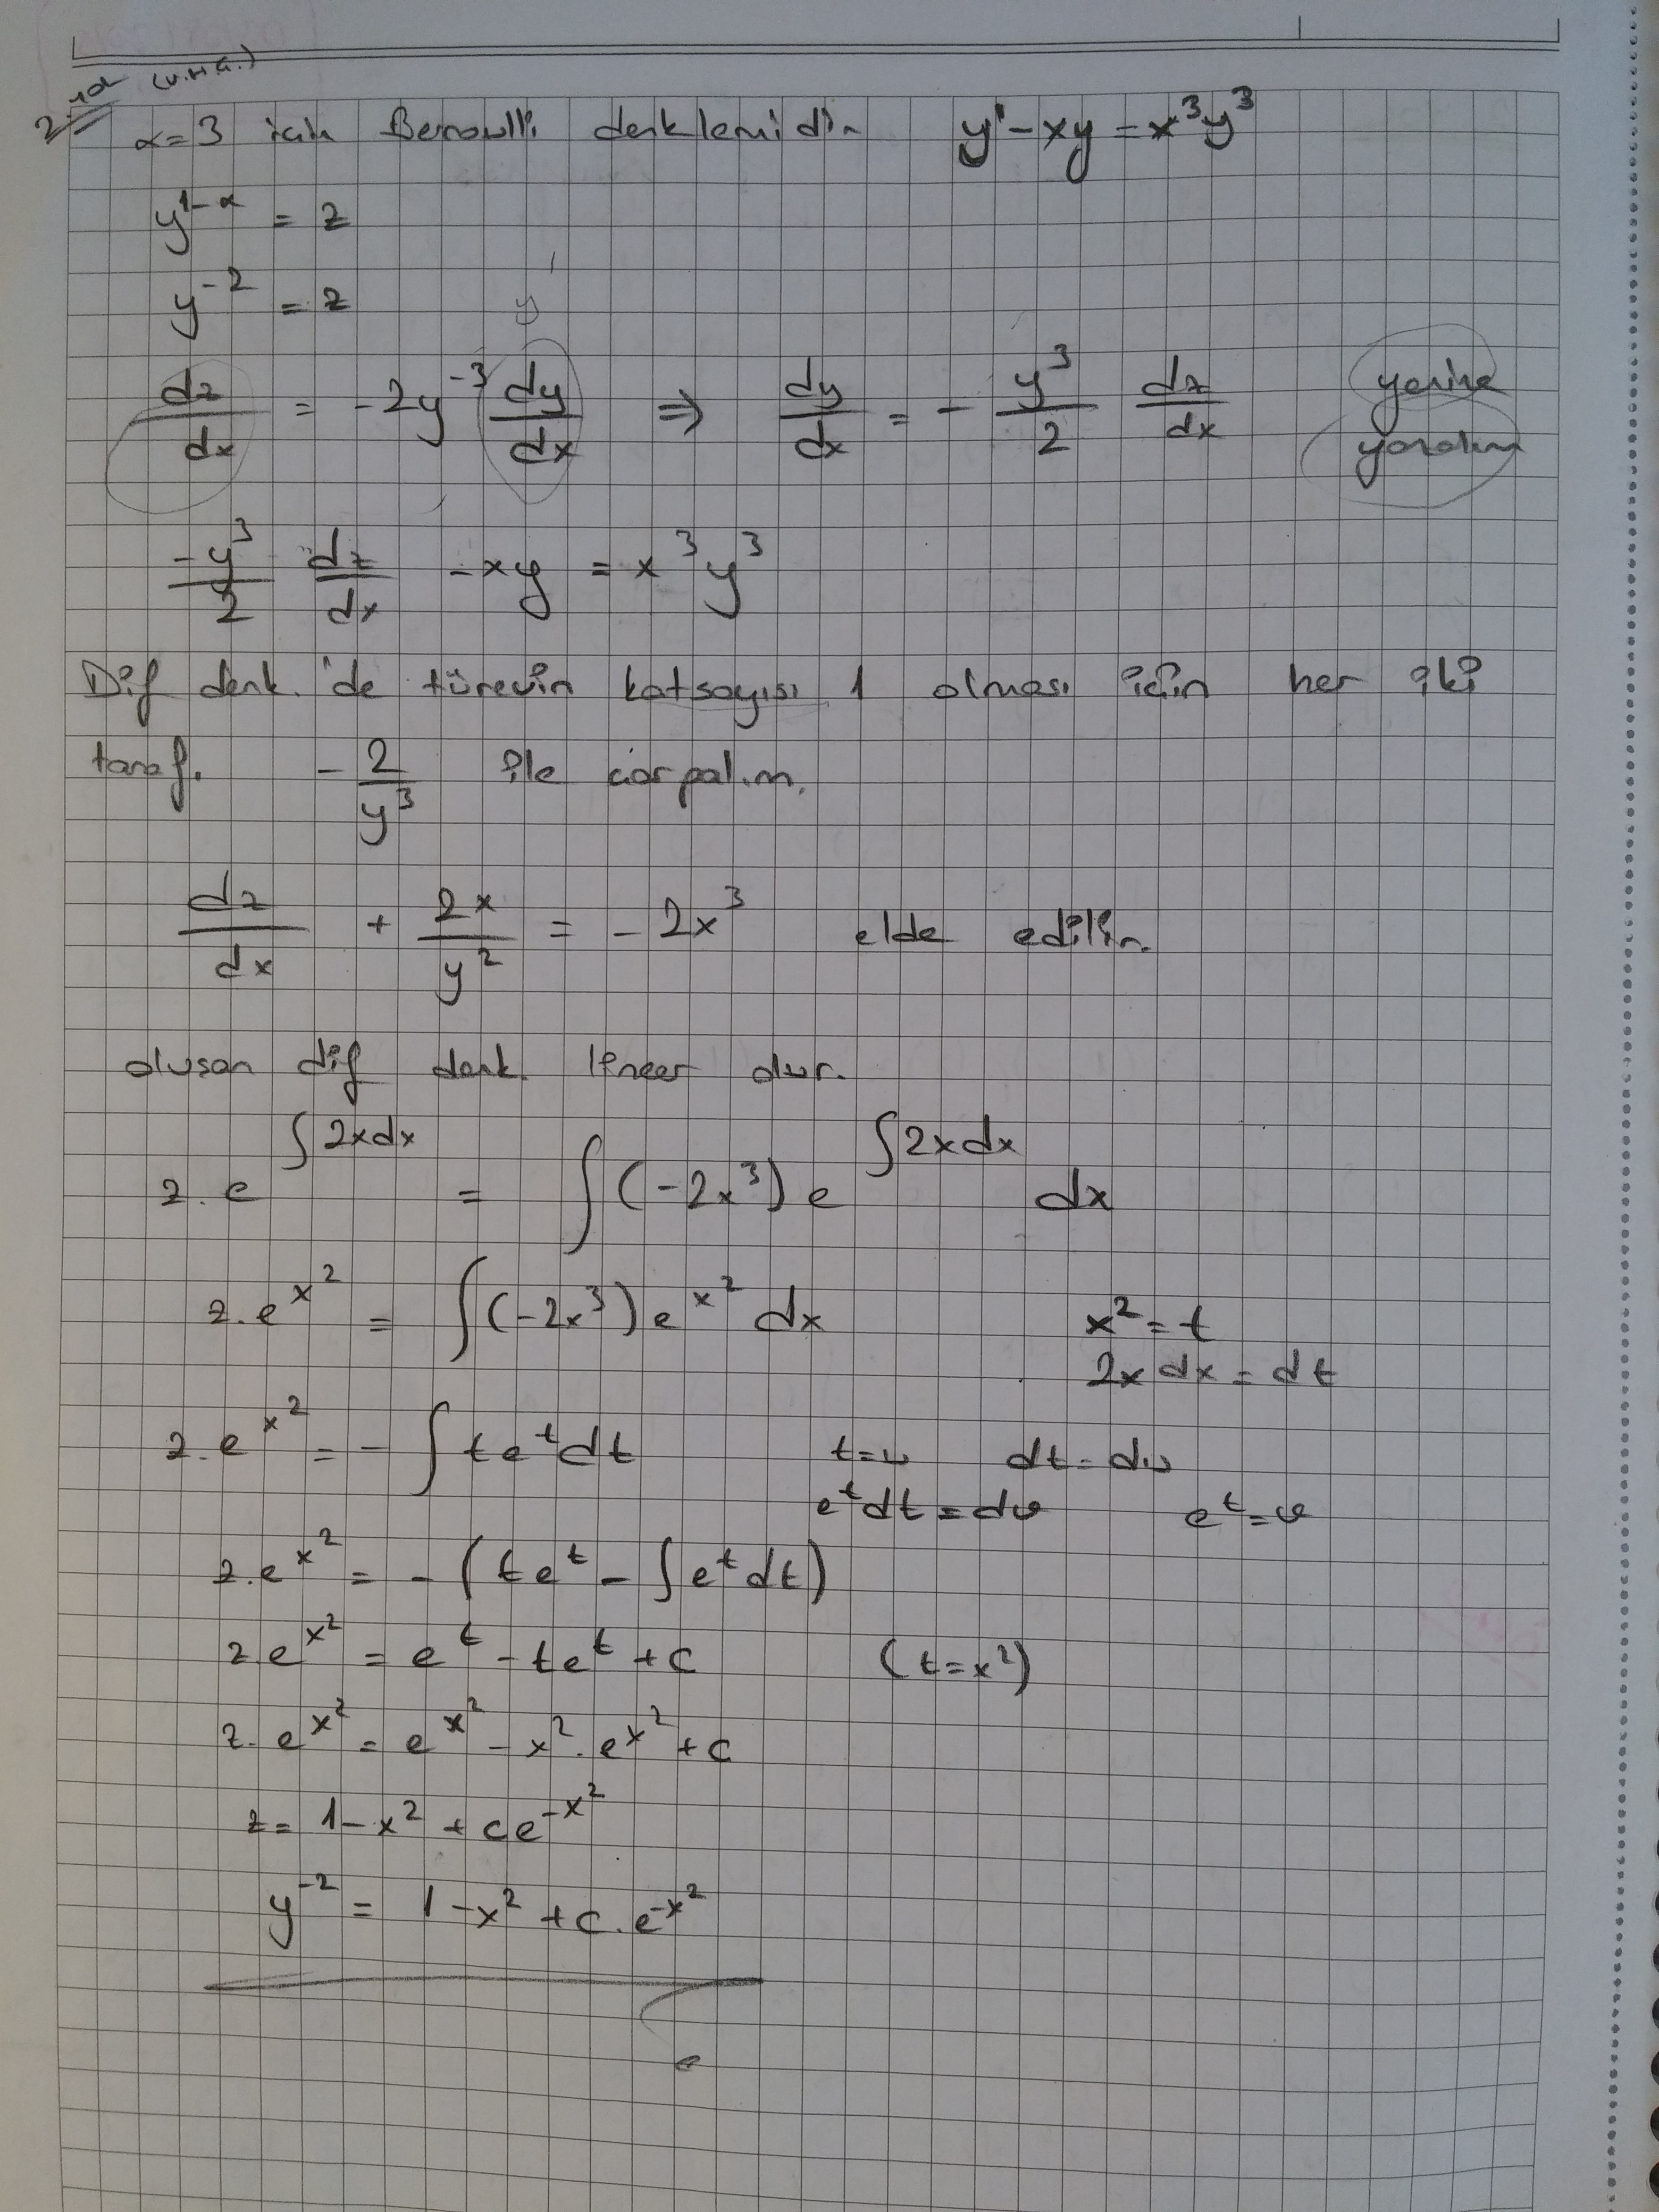 2. yol (U.H.G.)
α=3 için Bernoulli denklemidir y' - xy = x³y³
y^{1-α} = z
y^{-2} = z
y'
dz/dx = -2y^{-3} dy/dx ⇒ dy/dx = - y³/2 dz/dx yerine
yazalım
-y³/2 dz/dx - xy = x³y³
Dif denk.'de türevin katsayısı 1 olması için her iki
taraf. - 2/y³ ile çarpalım.
dz/dx + 2x/y² = -2x³ elde edilir.
oluşan dif denk. lineer dur.
z.e^{∫2xdx} = ∫(-2x³)e^{∫2xdx} dx
z.e^{x²} = ∫(-2x³)e^{x²} dx x² = t
2x dx = dt
z.e^{x²} = - ∫te^t dt t=u dt = du
e^t dt = dv e^t = v
z.e^{x²} = - (te^t - ∫e^t dt)
z.e^{x²} = e^t - te^t + c (t=x²)
z.e^{x²} = e^{x²} - x².e^{x²} + c
z = 1 - x² + ce^{-x²}
y^{-2} = 1 - x² + c.e^{-x²}